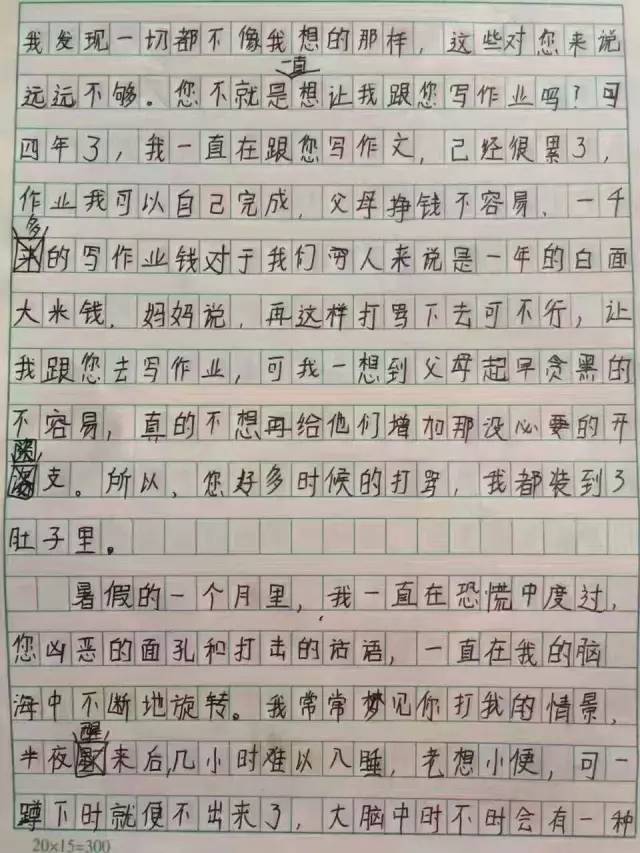 我发现一切都不像我想的那样，这些对您来说
远远不够。您不就是一直想让我跟您写作业吗？可
四年了，我一直在跟您写作文，已经很累了，
作业我可以自己完成，父母挣钱不容易、一千
多的写作业钱对于我们穷人来说是一年的白面
大米钱，妈妈说，再这样打骂下去可不行，让
我跟您去写作业，可我一想到父母起早贪黑的
不容易，真的不想再给他们增加那没必要的开
支。所以、您好多时候的打骂，我都装到了
肚子里。
暑假的一个月里，我一直在恐慌中度过，
您凶恶的面孔和打击的话语，一直在我的脑
海中不断地旋转。我常常梦见你打我的情景，
半夜醒来后，几小时难以入睡，老想小便，可一
蹲下时就便不出来了，大脑中时不时会有一种
20×15=300